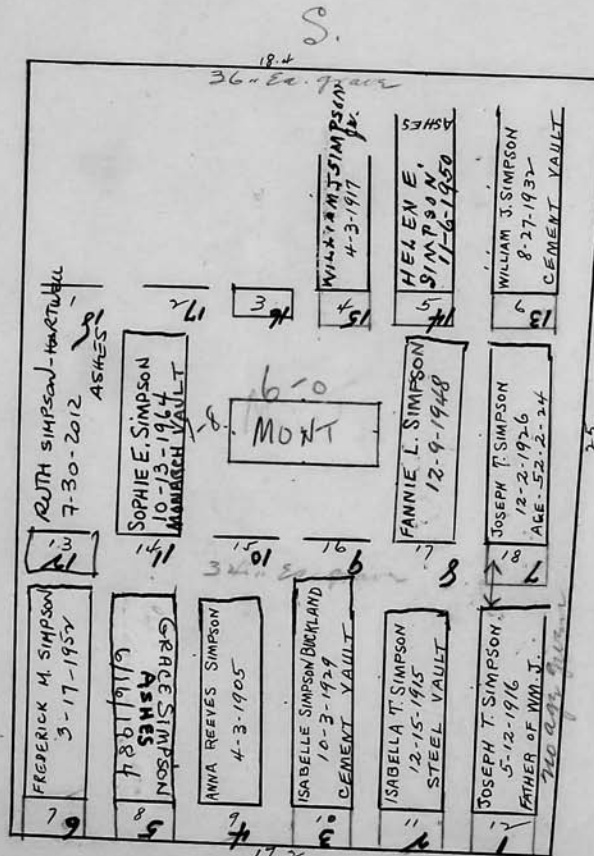 S.
18.4
36" Ea. grave
WILLIAM J. SIMPSON
Jr.
4-3-1917
HELEN E.
SIMPSON.
11-6-1950
ASHES
WILLIAM J. SIMPSON
8-27-1932
CEMENT VAULT
18
17
2
16
3
15
4
14
5
13
RUTH SIMPSON-HARTWELL
7-30-2012
ASHES
SOPHIE E. SIMPSON
10-13-1964
MONARCH VAULT
6-0
MONT
FANNIE L. SIMPSON
12-9-1948
JOSEPH T. SIMPSON
12-2-1926
AGE-52-2-24
25
12
13
11
14
10
15
9
16
8
17
7
18
Ea. grave
FREDERICK M. SIMPSON
3-17-1952
GRACE SIMPSON
ASHES
6/16/1984
ANNA REEVES SIMPSON
4-3-1905
ISABELLE SIMPSON BUCKLAND
10-3-1929
CEMENT VAULT
ISABELLA T. SIMPSON
12-15-1915
STEEL VAULT
JOSEPH T. SIMPSON.
5-12-1916
FATHER OF WM. J.
no age given
6
7
5
8
4
9
3
10
2
11
1
12